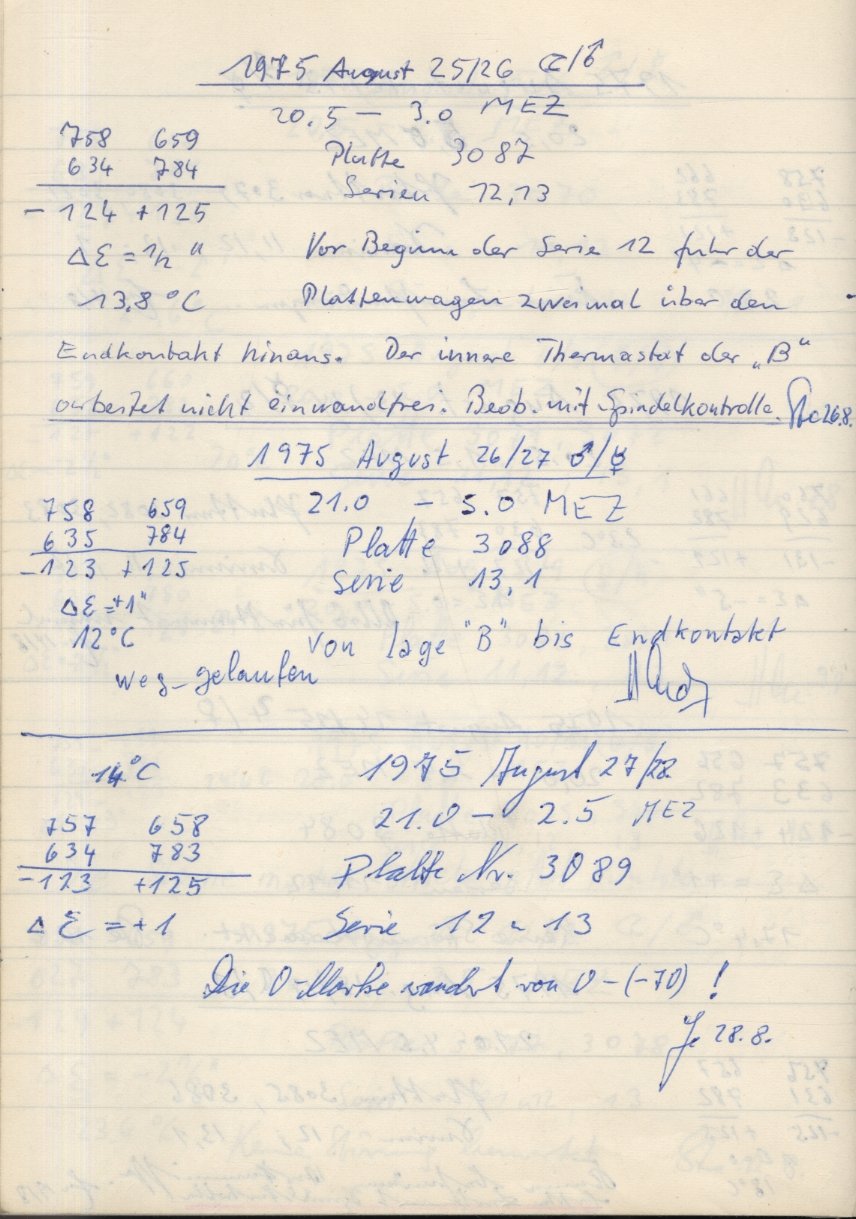 1975 August 25/26 ☾/♂
20.5 — 3.0 MEZ
758 659
634 784
-124 +125
Platte 3087
Serien 12,13
Δε = 1/2 "
13,8 °C
Vor Beginn der Serie 12 fuhr der
Plattenwagen zweimal über den
Endkontakt hinaus. Der innere Thermostat der „B"
arbeitet nicht einwandfrei. Beob. mit Spindelkontrolle. 26.8.
1975 August 26/27 ♂/☿
21.0 — 5.0 MEZ
758 659
635 784
-123 +125
Platte 3088
Serie 13,1
Δε = +1"
12°C
Von Lage "B" bis Endkontakt
weg-gelaufen
14°C
1975 August 27/28
21.0 — 2.5 MEZ
757 658
634 783
-123 +125
Platte Nr. 3089
Δε = +1
Serie 12 u 13
Die 0-Marke wandert von 0-(-70) !
28.8.